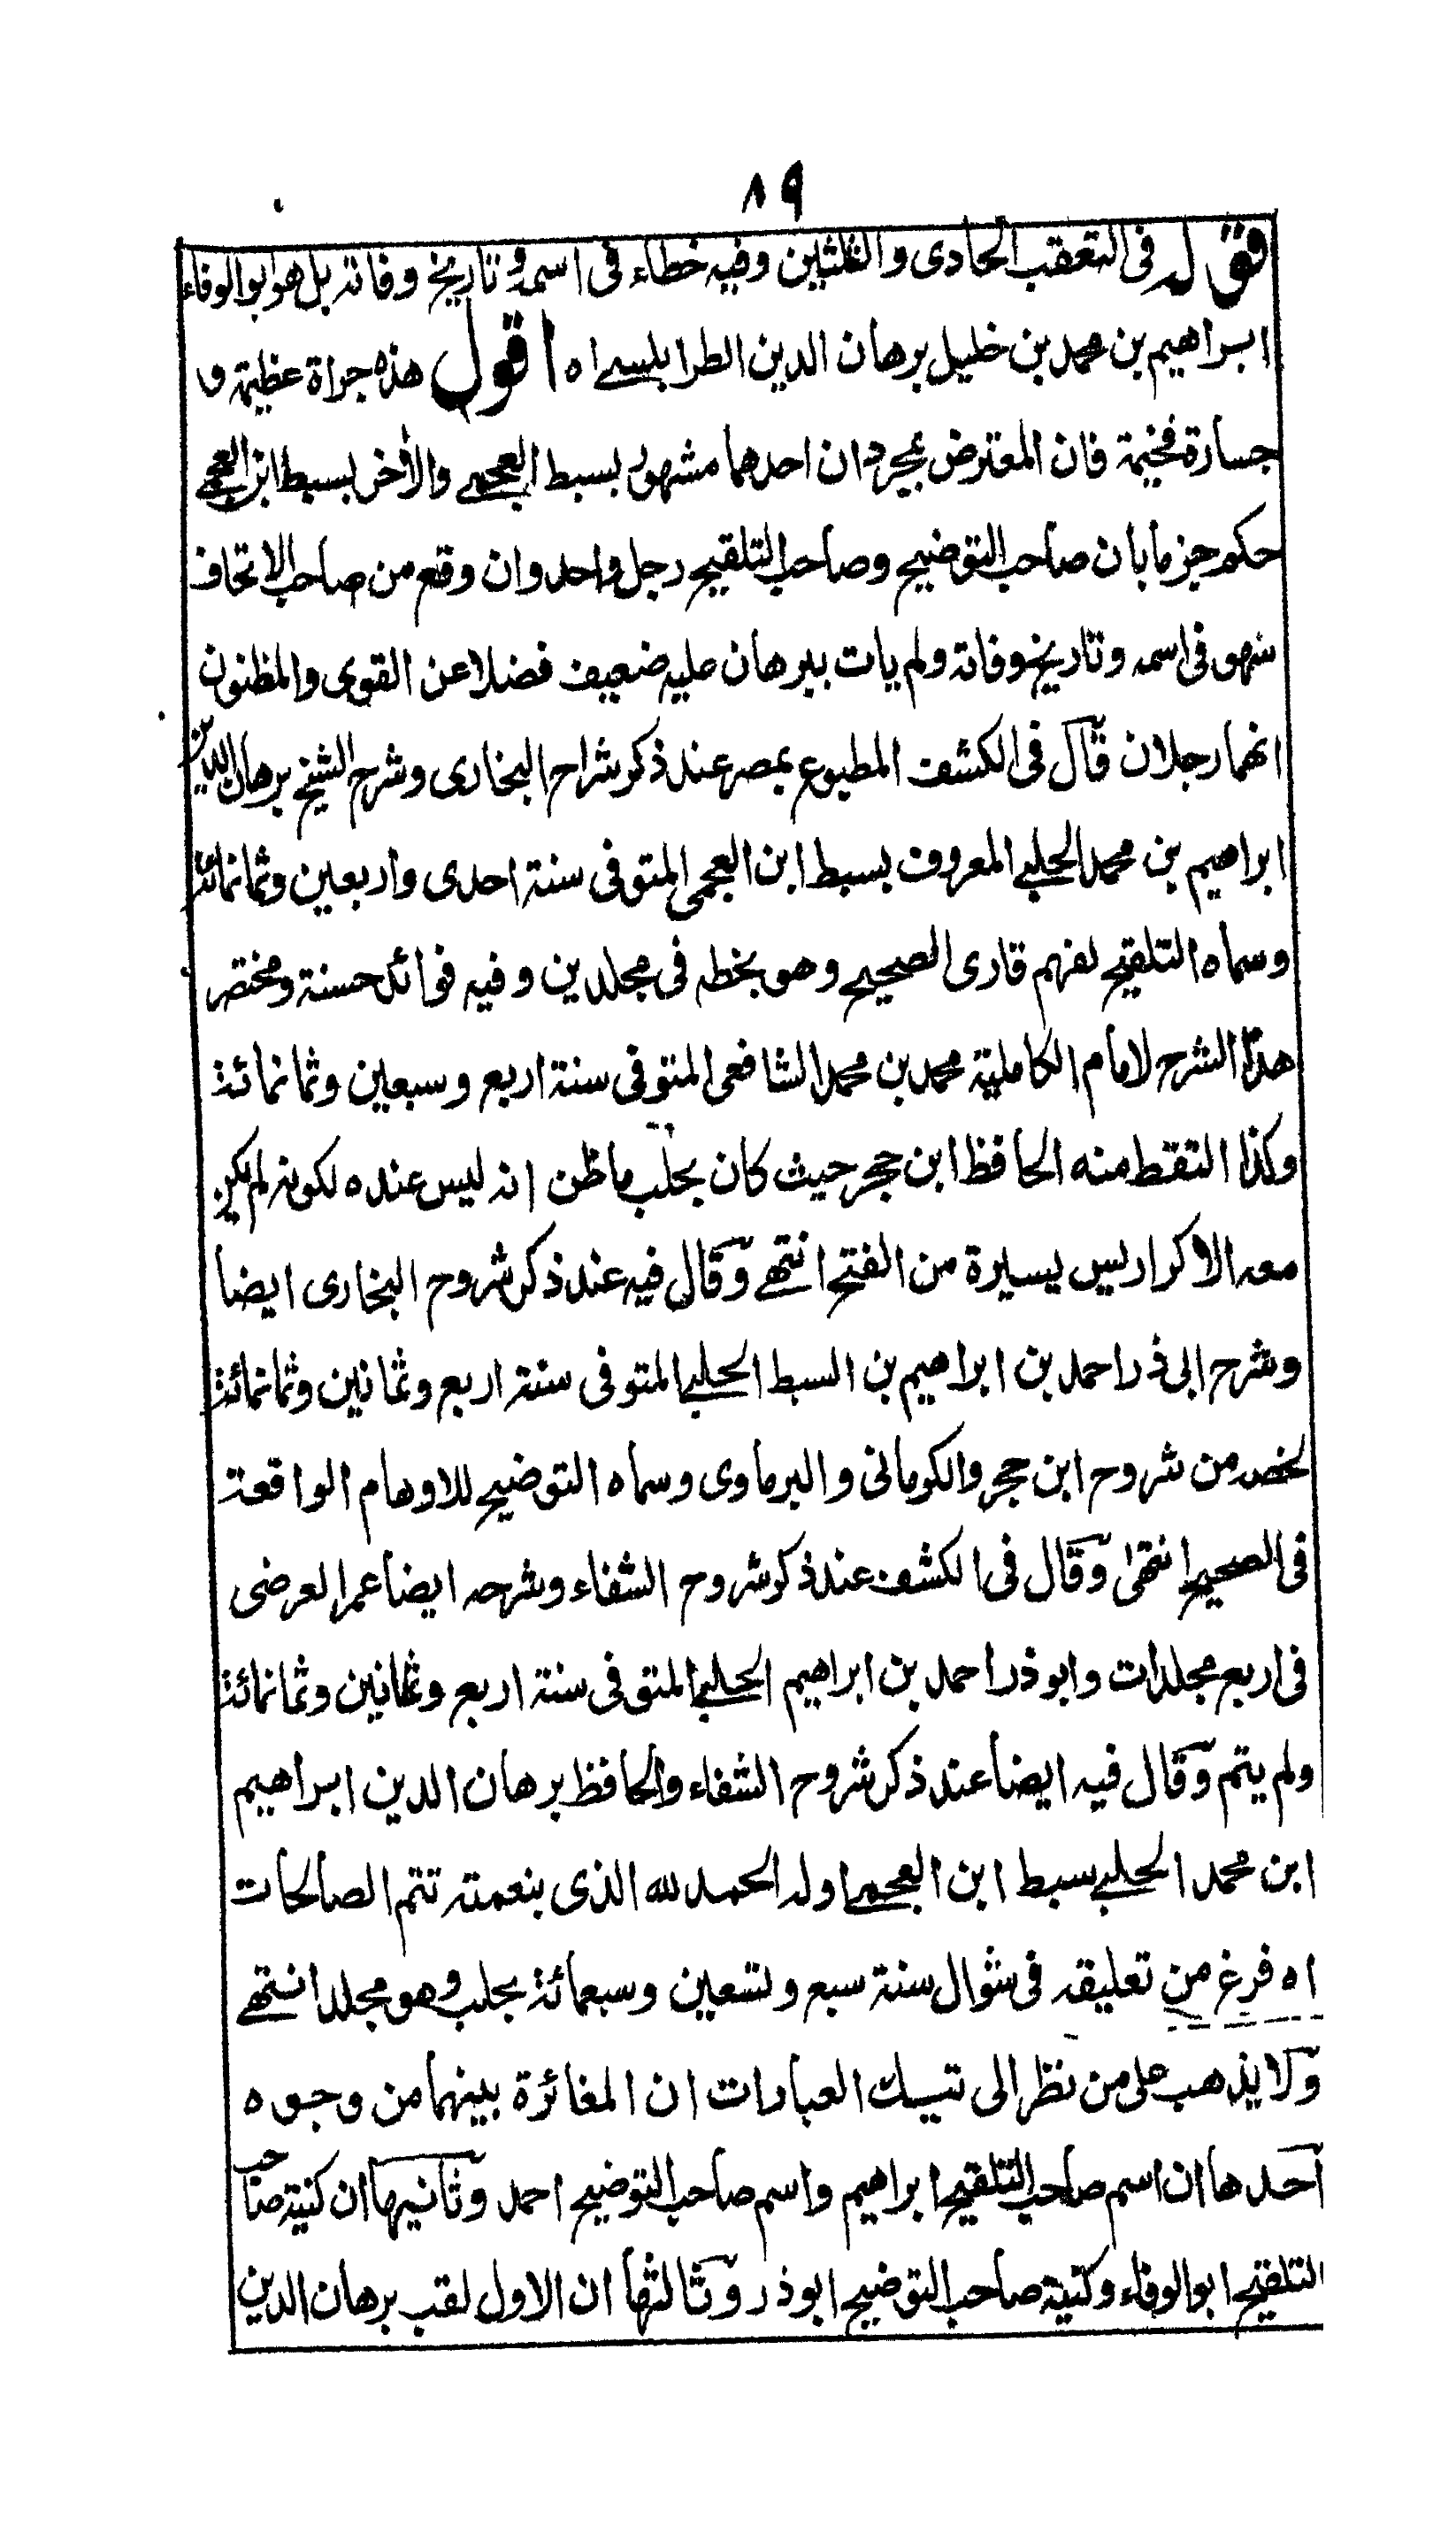 ٨٩
قوله فى التعقب الحادى والثلثين وفيه خطاء فى اسمه وتاريخ وفاته بل هو ابو الوفاء
ابراهيم بن محمد بن خليل برهان الدين الطرابلسے اه اقول هذه جراة عظيمة و
جسارة فخيمة فان المعترض بمجرد ان احدهما مشهور بسبط العجمے والآخر بسبط ابن العجمے
حكم جزما بان صاحب التوضيح وصاحب التلقيح رجل واحد وان وقع من صاحب الاتحاف
سهو فى اسمه وتاريخ وفاته ولم يات ببرهان عليه ضعيف فضلا عن القوى والمظنون
انهما رجلان قال فى الكشف المطبوع بمصر عند ذكر شراح البخارى وشرح الشيخ برهان الدين
ابراهيم بن محمد الحلبے المعروف بسبط ابن العجمى المتوفى سنة احدى واربعين وثمانمائة
وسماه التلقيح لفهم قارى الصحيح وهو بخطه فى مجلدين وفيه فوائد حسنة ومختصر
هذا الشرح لامام الكاملية محمد بن محمد الشافعى المتوفى سنة اربع وسبعين وثمانمائة
وكذا التقط منه الحافظ ابن حجر حيث كان بحلب ما ظن انه ليس عنده لكونه لم يكن
معه الا كراريس يسيرة من الفتح انتهے وقال فيه عند ذكر شروح البخارى ايضا
وشرح ابى ذر احمد بن ابراهيم بن السبط الحلبے المتوفى سنة اربع وثمانين وثمانمائة
لخصه من شروح ابن حجر والكرمانى والبرماوى وسماه التوضيح للاوهام الواقعة
فى الصحيح انتهى وقال فى الكشف عند ذكر شروح الشفاء وشرحه ايضا عمر العرضى
فى اربع مجلدات وابو ذر احمد بن ابراهيم الحلبے المتوفى سنة اربع وثمانين وثمانمائة
ولم يتم وقال فيه ايضا عند ذكر شروح الشفاء والحافظ برهان الدين ابراهيم
ابن محمد الحلبے سبط ابن العجمے اوله الحمد لله الذى بنعمته تتم الصالحات
اه فرغ من تعليقه فى شوال سنة سبع وتسعين وسبعمائة بحلب وهو مجلد انتهے
ولا يذهب على من نظر الى تيسك العبارات ان المغائرة بينهما من وجوه
احدها ان اسم صاحب التلقيح ابراهيم واسم صاحب التوضيح احمد وثانيها ان كنية صاحب
التلقيح ابو الوفاء وكنية صاحب التوضيح ابو ذر وثالثها ان الاول لقب برهان الدين